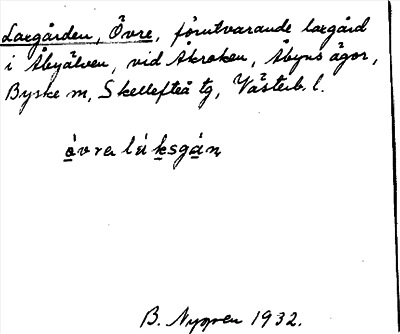 Laxgården, Övre, förutvarande laxgård
i Åbyälven, vid Åkroken, Åbyns ägor,
Byske sn, Skellefteå tg, Västerb. l.
B. Nygren 1932.